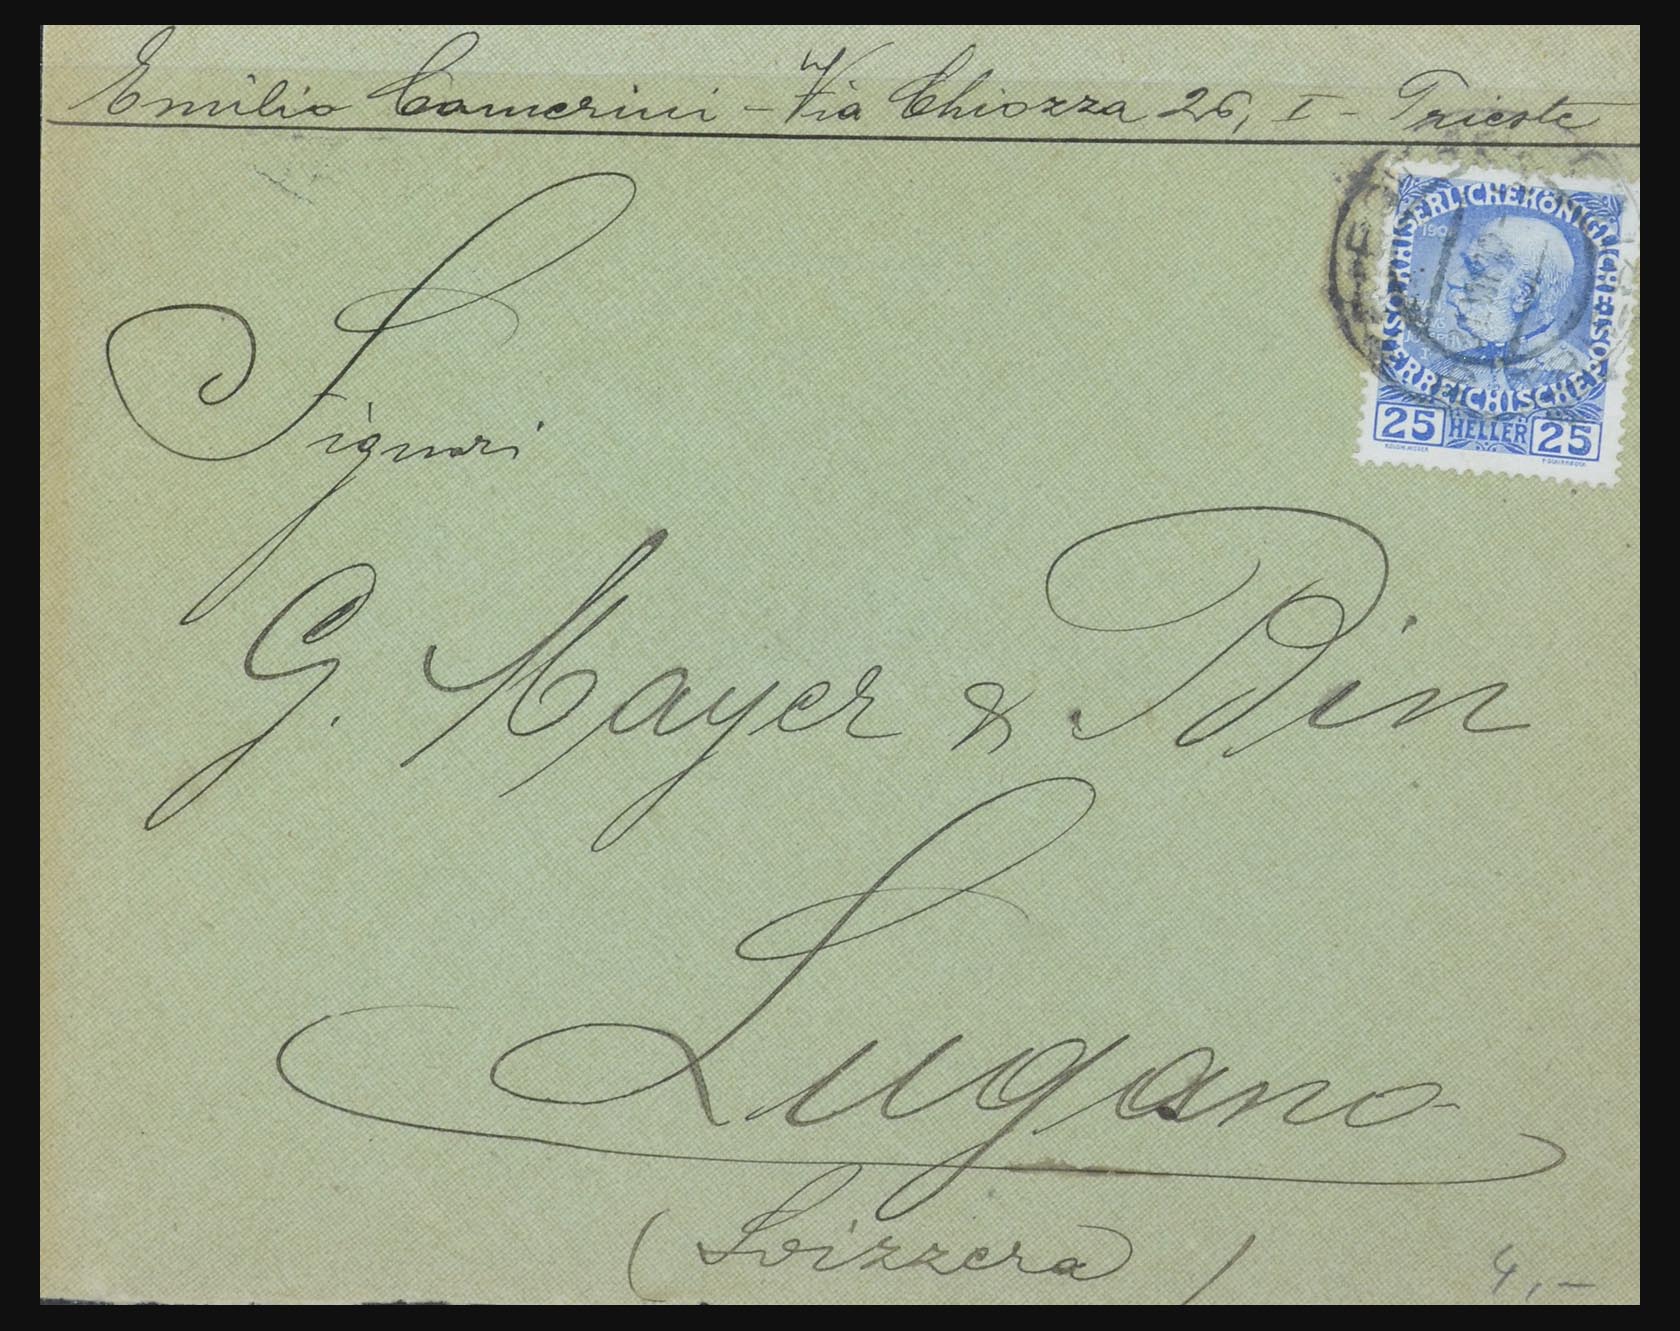 Emilio Camerini - Via Chiozza 26, I - Trieste
KAISERLICHE KÖNIGLICHE ÖSTERREICHISCHE POST
25 HELLER 25
Signori
G. Mayer & Bin
Lugano
(Svizzera)
4,-